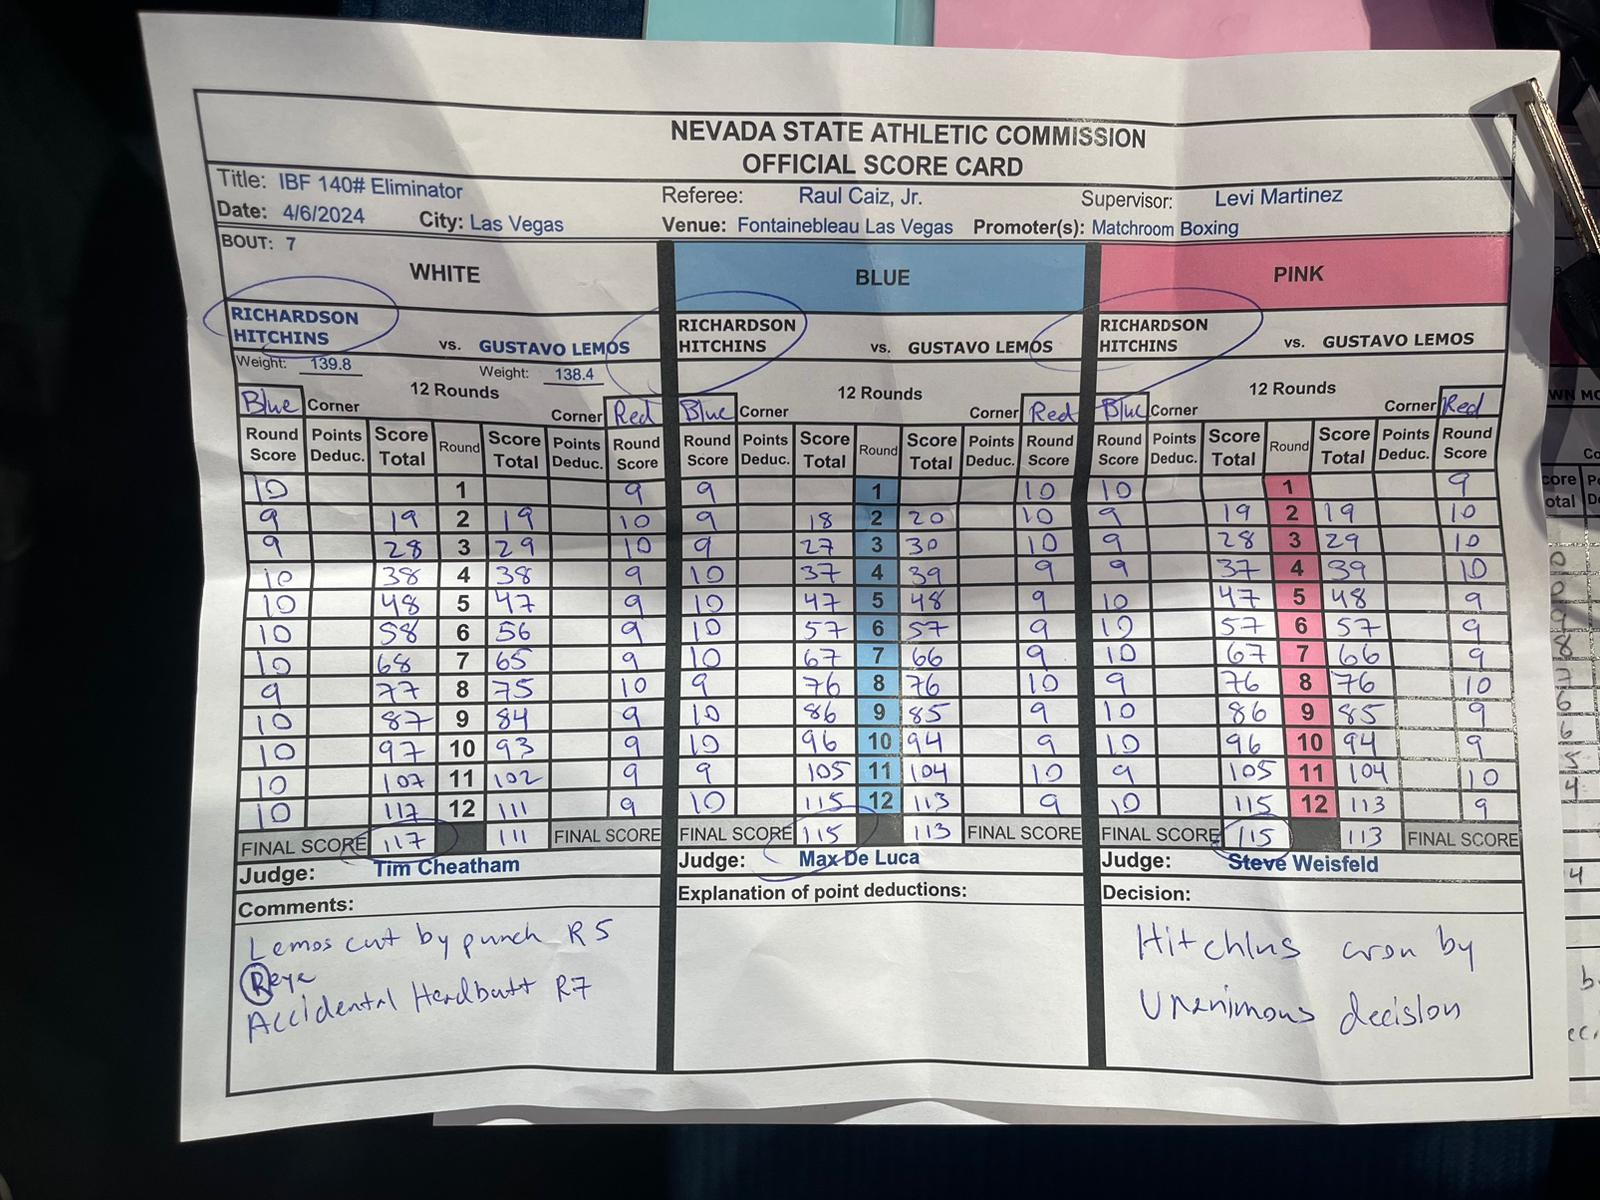 NEVADA STATE ATHLETIC COMMISSION
OFFICIAL SCORE CARD
Title: IBF 140# Eliminator Referee: Raul Caiz, Jr. Supervisor: Levi Martinez
Date: 4/6/2024 City: Las Vegas Venue: Fontainebleau Las Vegas Promoter(s): Matchroom Boxing
BOUT: 7
WHITE BLUE PINK
RICHARDSON HITCHINS vs. GUSTAVO LEMOS RICHARDSON HITCHINS vs. GUSTAVO LEMOS RICHARDSON HITCHINS vs. GUSTAVO LEMOS
Weight: 139.8 Weight: 138.4
12 Rounds 12 Rounds 12 Rounds
Blue Corner Corner Red Blue Corner Corner Red Blue Corner Corner Red
Round Score Points Deduc. Score Total Round Score Total Points Deduc. Round Score Round Score Points Deduc. Score Total Round Score Total Points Deduc. Round Score Round Score Points Deduc. Score Total Round Score Total Points Deduc. Round Score
10 1 9 9 1 10 10 1 9
9 19 2 19 10 9 18 2 20 10 9 19 2 19 10
9 28 3 29 10 9 27 3 30 10 9 28 3 29 10
10 38 4 38 9 10 37 4 39 9 9 37 4 39 10
10 48 5 47 9 10 47 5 48 9 10 47 5 48 9
10 58 6 56 9 10 57 6 57 9 10 57 6 57 9
10 68 7 65 9 10 67 7 66 9 10 67 7 66 9
9 77 8 75 10 9 76 8 76 10 9 76 8 76 10
10 87 9 84 9 10 86 9 85 9 10 86 9 85 9
10 97 10 93 9 10 96 10 94 9 10 96 10 94 9
10 107 11 102 9 9 105 11 104 10 9 105 11 104 10
10 117 12 111 9 10 115 12 113 9 10 115 12 113 9
FINAL SCORE 117 111 FINAL SCORE FINAL SCORE 115 113 FINAL SCORE FINAL SCORE 115 113 FINAL SCORE
Judge: Tim Cheatham Judge: Max De Luca Judge: Steve Weisfeld
Comments: Explanation of point deductions: Decision:
Lemos cut by punch R5
R eye
Accidental Headbutt R7
Hitchins won by
Unanimous decision